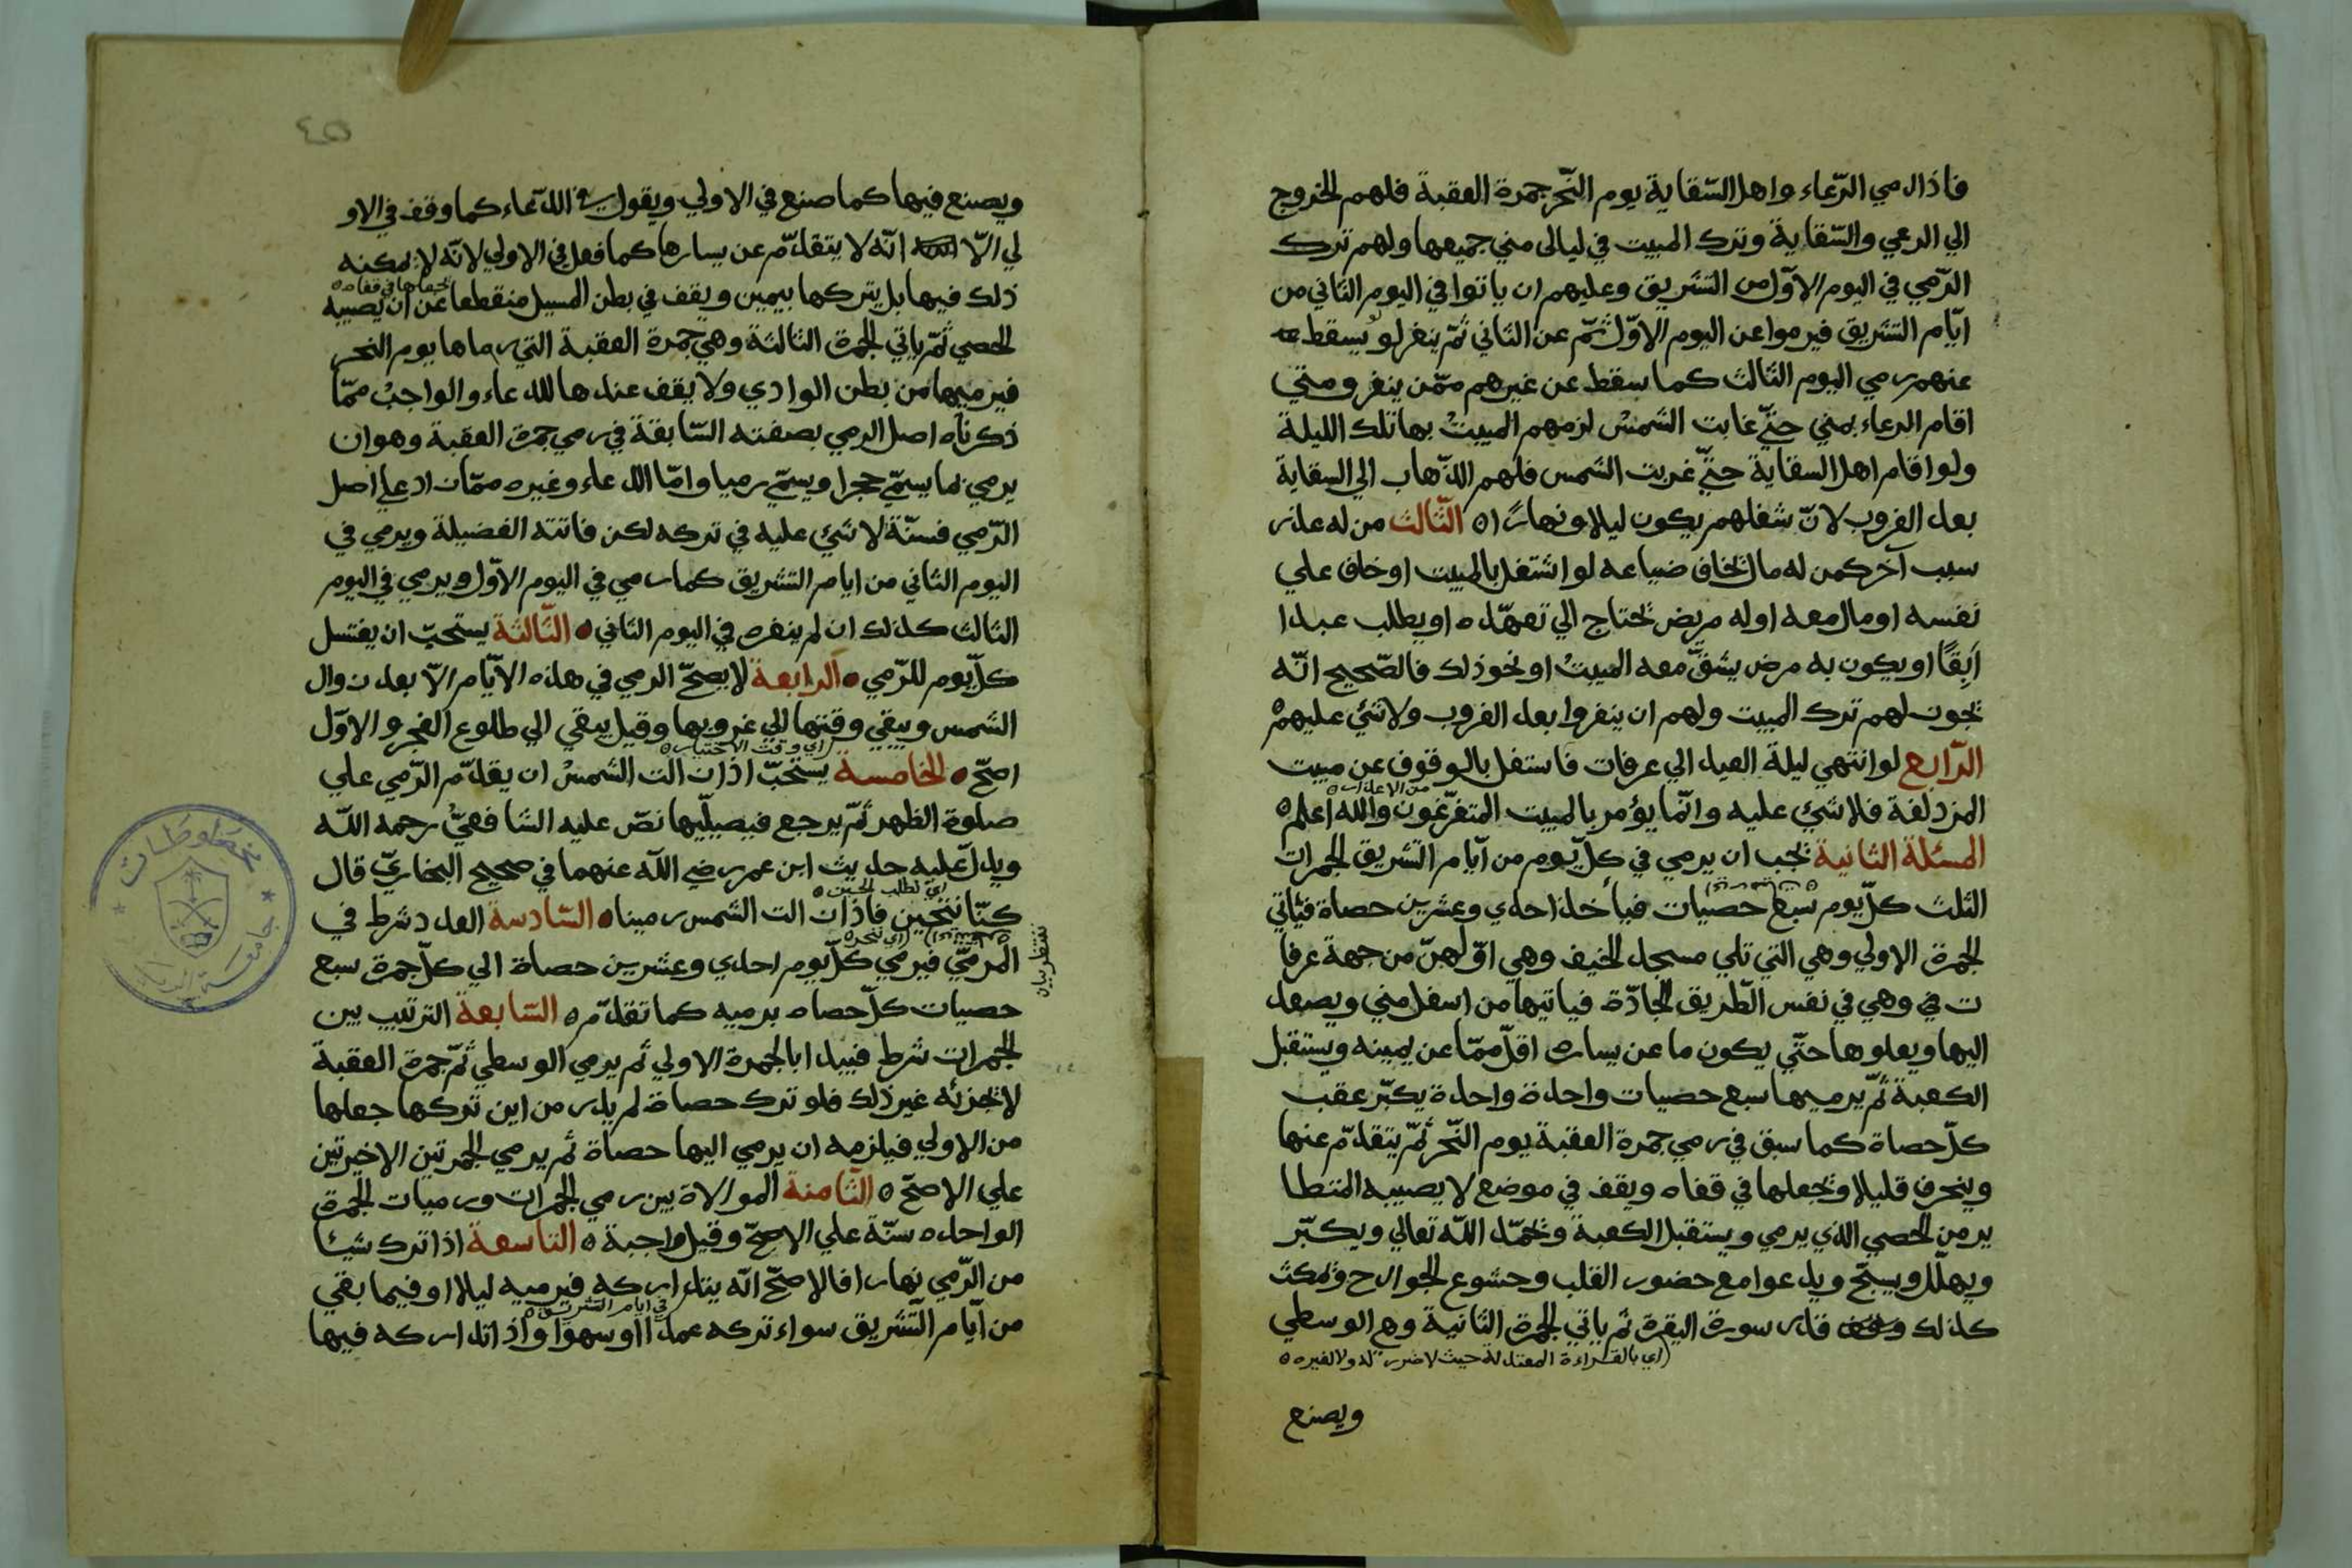 فاذا رمي الرّعاء واهل السّقاية يوم النّحر جمرة العقبة فلهم الخروج
الي الرعي والسّقاية وترك المبيت في ليالى مني جميعها ولهم ترك
الرّمي في اليوم الاوّل من التشريق وعليهم ان ياتوا في اليوم الثاني من
ايّام التشريق فيرموا عن اليوم الاوّل ثمّ عن الثاني ثمّ ينفر لو يسقط
عنهم رمي اليوم الثالث كما سقط عن غيرهم ممّن ينفر ومتي
اقام الرعاء بمني حتّي غابت الشمس لزمهم المبيتُ بها تلك الليلة
ولو اقام اهل السقاية حتّي غربت الشمس فلهم الذّهاب الي السقاية
بعد الغروب لانّ شغلهم يكون ليلا ونهارًا ه الثّالث من له عذر
سبب آخر كمن له مال يخاف ضياعه لو اشتغل بالمبيت او خاف علي
نفسه او مال معه او له مريض يحتاج الي تعهّده او يطلب عبدا
آبِقًا او يكون به مرض يشقّ معه المبيتُ او نحو ذلك فالصّحيح انّه
يجوز لهم ترك المبيت ولهم ان ينفروا بعد الغروب ولا شئ عليهم ه
الرّابع لو انتهي ليلة العيد الي عرفات فاستغل بالوقوف عن مبيت
من الاعذار ه
المزدلفة فلا شئ عليه وانّما يؤمر بالمبيت المتفرّغون والله اعلم ه
المسئلة الثانية يجب ان يرمي في كلّ يوم من ايّام التّشريق الجمرات
الثلث كلّ يوم سبع حصيات فيأخذ احدي وعشرين حصاة فيأتي
الجمرة الاولي وهي التي تلي مسجد الخيف وهي اوّلهنّ من جهة عرفا
ت في وهي في نفس الطّريق الجادّة فياتيها من اسفل مني ويصعد
اليها ويعلوها حتّي يكون ما عن يساره اقلّ ممّا عن يمينه ويستقبل
الكعبة ثمّ يرميها سبع حصيات واحدة واحدة يكبّر عقب
كلّ حصاة كما سبق في رمي جمرة العقبة يوم النّحر ثمّ يتقدّم عنها
وينحرف قليلا ويجعلها في قفاه ويقف في موضع لا يصيبه المتطا
ير من الحصي الذي يرمي ويستقبل الكعبة ويحمد الله تعالي ويكبّر
ويهلّل ويسبّح ويدعوا مع حضور القلب وخشوع الجوارح ويمكث
كذلك قدر سورة البقرة ثم ياتي الجمرة الثانية وهي الوسطي
(اي بالقراءة المعتدلة حيث لا ضرر له ولا لغيره ه
ويصنع
٤٥
ويصنع فيها كما صنع في الاولي ويقول في الدّعاء كما وقف في الاو
لي الاّ انّه لا يتقدّم عن يسارها كما فعل في الاولي لانّه لا يمكنه
يجعلها في قفاه ه
ذلك فيها بل يتركها بيمين ويقف في بطن المسيل منقطعا عن ان يصيبه
الحصي ثمّ ياتي الجمرة الثالثة وهي جمرة العقبة التي رماها يوم النحر
فيرميها من بطن الوادي ولا يقف عندها للدعاء والواجبُ ممّا
ذكرناه اصل الرمي بصفته السّابقة في رمي جمرة العقبة وهو ان
يرمي بما يسمّي حجرا ويسمّي رميا وامّا الدعاء وغيره ممّا زاد علي اصل
الرّمي فسنّة لا شئ عليه في تركه لكن فاتته الفضيلة ويرمي في
اليوم الثاني من ايام التشريق كما رمي في اليوم الاوّل ويرمي في اليوم
الثالث كذلك ان لم ينفره في اليوم الثاني ه الثّالثة يستحبّ ان يغتسل
كلّ يوم للرّمي ه الرابعة لا يصحّ الرمي في هذه الايّام الاّ بعد زوال
الشمس ويبقي وقتها الي غروبها وقيل يبقي الي طلوع الفجر والاوّل
(اي وقت الاختيار ه
اصحّ ه الخامسة يستحبّ اذا زالت الشمسُ ان يقدّم الرّمي علي
صلوة الظهر ثمّ يرجع فيصلّيها نصّ عليه الشافعيّ رحمه الله
ويدلّ عليه حديث ابن عمر رضي الله عنهما في صحيح البخاريّ قال
اي نطلب الحين ه
كنّا نتحيّن فاذا زالت الشمس رمينا ه السّادسة العدد شرط في
المرميّ فيرمي كلّ يوم احدي وعشرين حصاة الي كلّ جمرة سبع
حصيات كلّ حصاه برميه كما تقدّم ه السّابعة الترتيب بين
الجمرات شرط فيبدا بالجمرة الاولي ثم يرمي الوسطي ثمّ جمرة العقبة
لا يجزئه غير ذلك فلو ترك حصاة لم يدر من اين تركها جعلها
من الاولي فيلزمه ان يرمي اليها حصاة ثم يرمي الجمرتين الاخيرتين
علي الاصحّ ه الثّامنة الموالاة بين رمي الجمرات ورميات الجمرة
الواحده سنّة علي الاصحّ وقيل واجبة ه التاسعة اذا ترك شيئا
من الرّمي نهارا فالاصحّ انّه يتداركه فيرميه ليلا او فيما بقي
في ايام التشريق ه
من ايّام التّشريق سواء تركه عمدا او سهوا واذا تداركه فيها
مخطوطات
جامعة الرياض